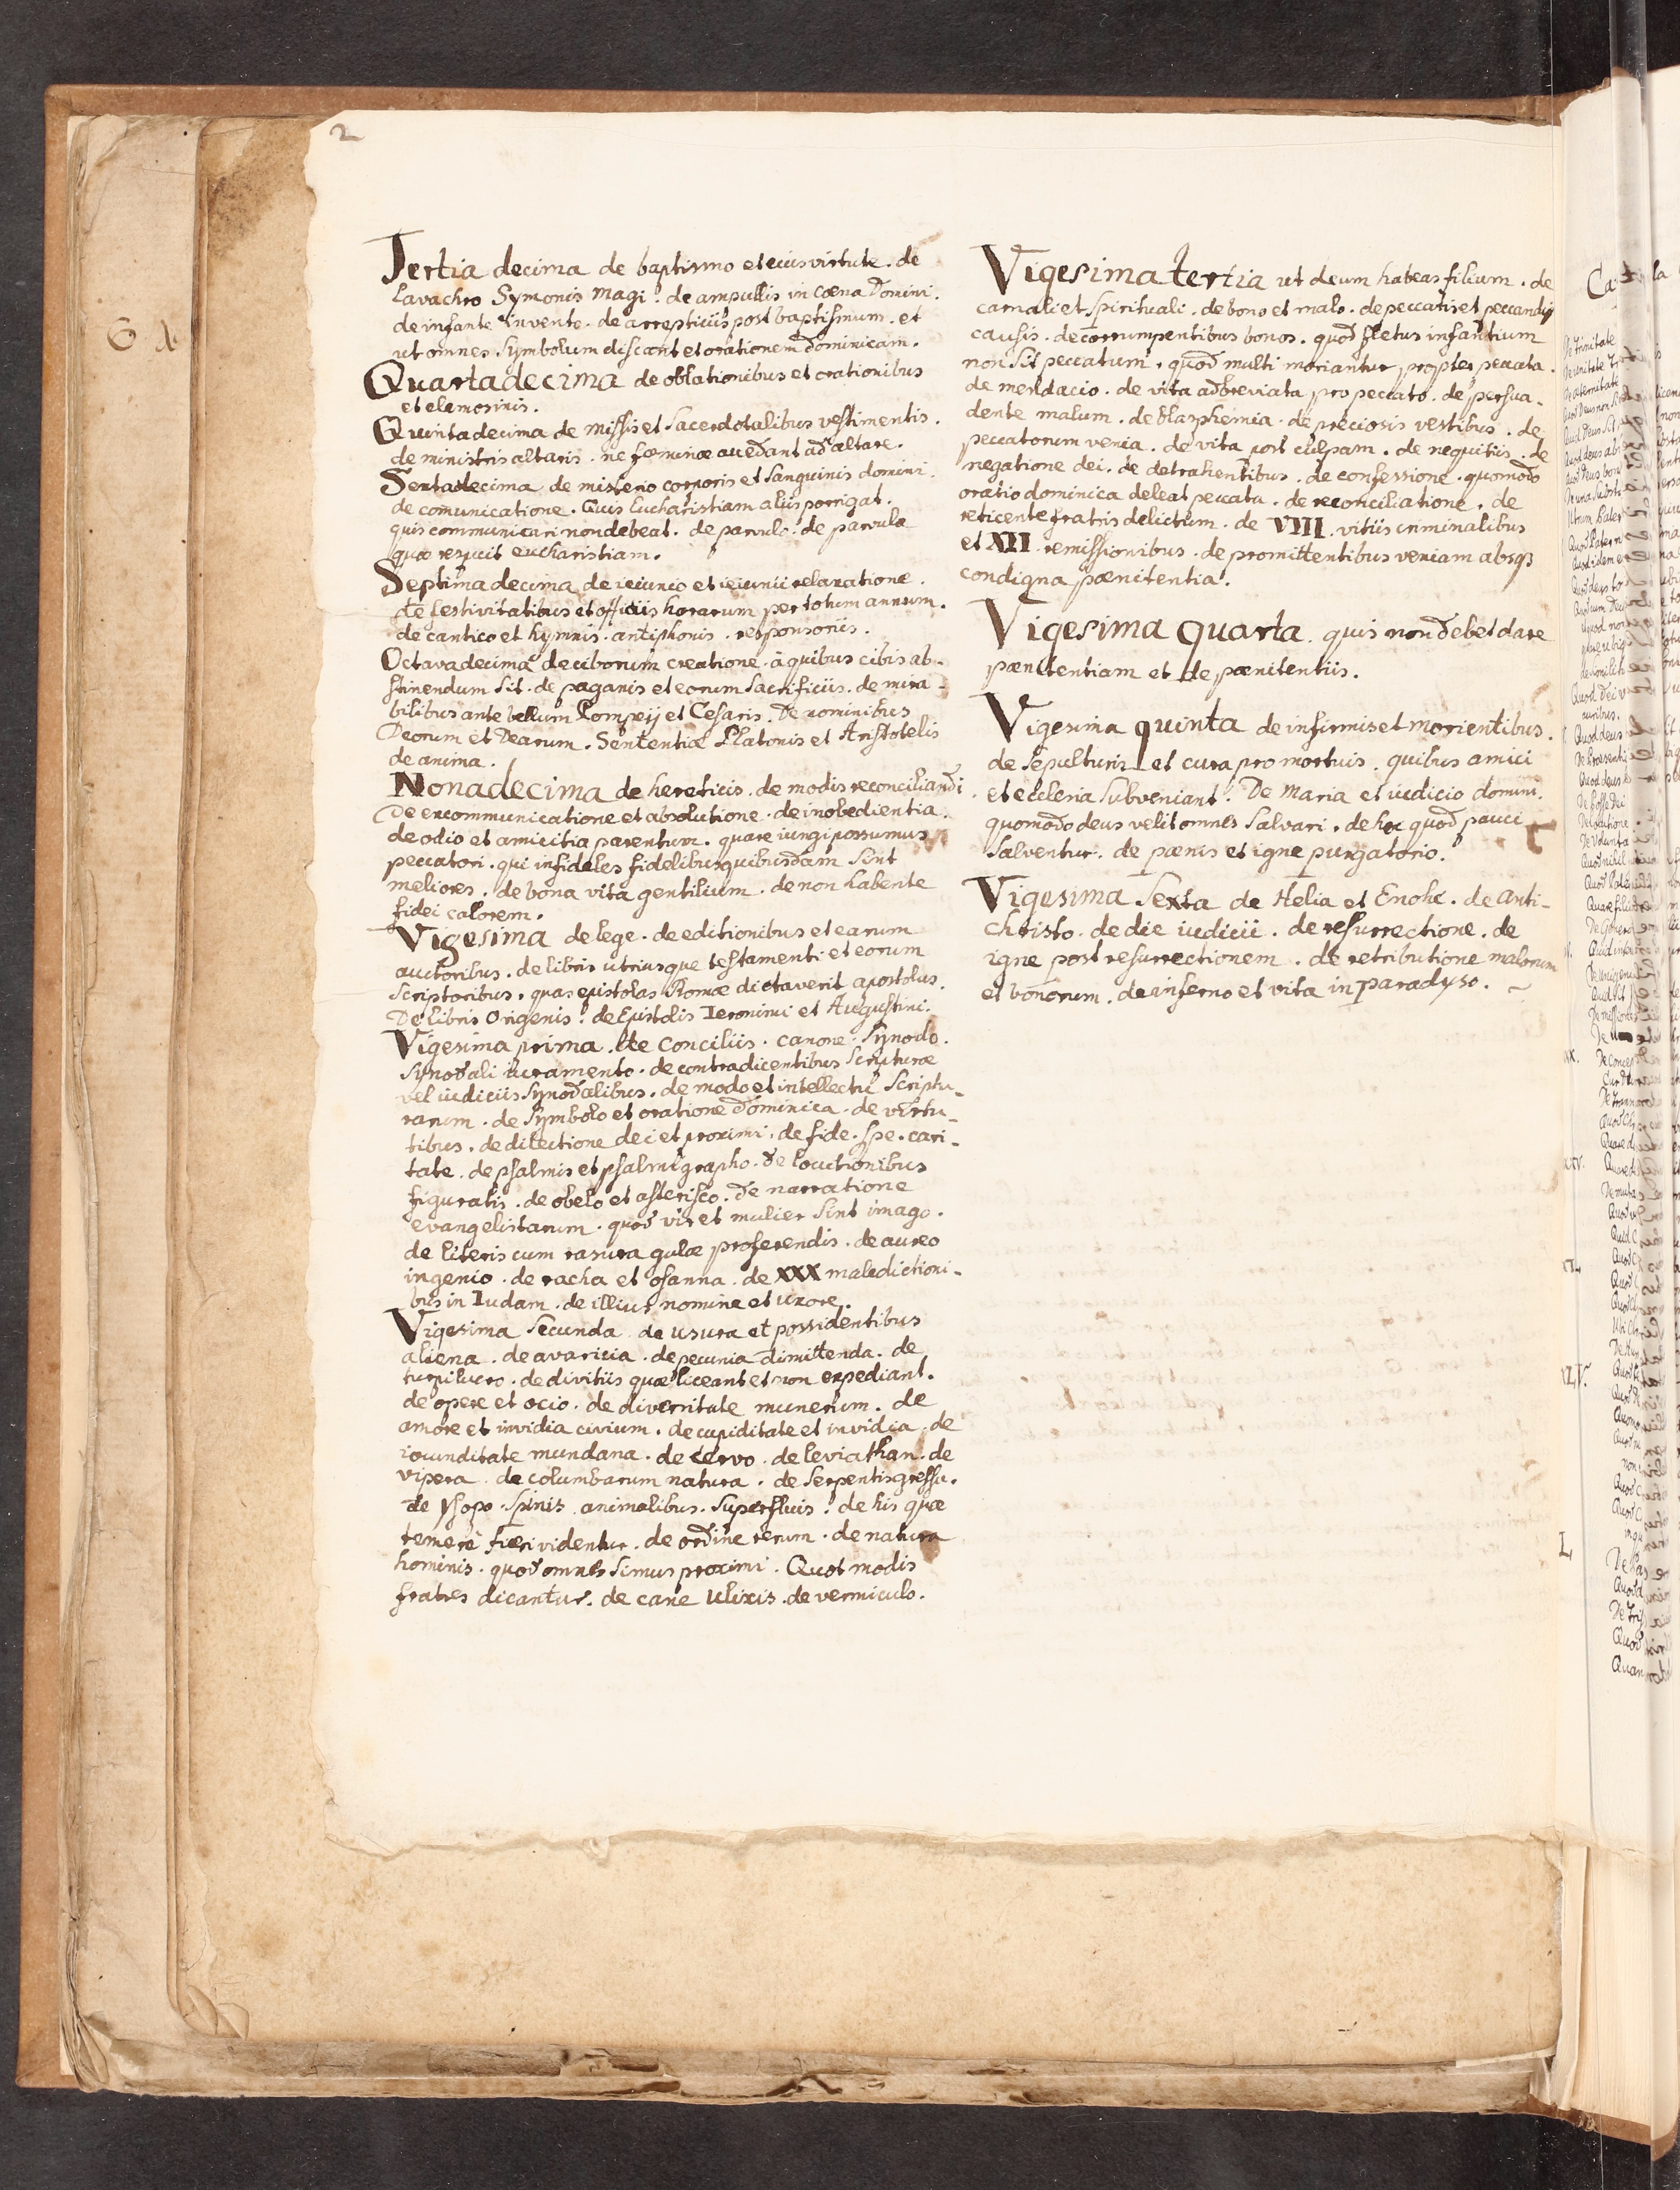 2
Tertia decima de baptismo et eius virtute. de
Lavachro Symonis magi. de ampullis in coena Domini.
de infante invento. de arrepticiis post baptismum. et
ut omnes Symbolum discant et orationem dominicam.
Quarta decima de oblationibus et orationibus
et elemosinis.
Quinta decima de missis et Sacerdotalibus vestimentis.
de ministris altaris. ne foeminae accedant ad altare.
Sexta decima de misterio corporis et Sanguinis domini.
de comunicatione. Quis Eucharistiam aliis porrigat.
quis communicari non debeat. de parvulo. de parvula
quae respuit eucharistiam.
Septima decima de ieiunio et ieiunii relaxatione.
de festivitatibus et officiis horarum per totum annum.
de cantico et hymnis. antiphonis. responsoriis.
Octava decima de ciborum creatione. a quibus cibis ab-
stinendum sit. de paganis et eorum Sacrificiis. de mira-
bilibus ante bellum Pompeij et Cesaris. De nominibus
Deorum et Dearum. Sententiae Platonis et Aristotelis
de anima.
Nona decima de hereticis. de modis reconciliandi.
De excommunicatione et absolutione. de inobedientia.
de odio et amicitia parentum. quare iungi possumus
peccatori. qui infideles fidelibus quibusdam sint
meliores. de bona vita gentilium. de non habente
fidei calorem.
Vigesima de lege. de editionibus et earum
auctoribus. de libris utriusque testamenti et eorum
Scriptoribus. quas epistolas Romae dictaverit apostolus.
De libris Origenis. de Epistolis Ieronimi et Augustini.
Vigesima prima. de Conciliis. canone. Synodo.
Synodali iuramento. de contradicentibus Scripturae
vel iudiciis Synodalibus. de modo et intellectu Scriptu-
rarum. de Symbolo et oratione dominica. de virtu-
tibus. de dilectione dei et proximi. de fide. spe. cari-
tate. de psalmis et psalmigrapho. de locutionibus
figuratis. de obelo et asterisco. de narratione
evangelistarum. quod vir et mulier sint imago.
de literis cum rasura gulae proferendis. de aureo
ingenio. de racha et osanna. de XXX maledictioni-
bus in Iudam. de illius nomine et uxore.
Vigesima Secunda de usura et possidentibus
aliena. de avaricia. de pecunia dimittenda. de
turpi lucro. de divitiis quae liceant et non expediant.
de opere et ocio. de diversitate munerum. de
amore et invidia civium. de cupiditate et invidia. de
iocunditate mundana. de cervo. de leviathan. de
vipera. de columbarum natura. de Serpentis gressu.
de ysopo. Spinis animalibus. Superfluis. de his quae
temere fieri videntur. de ordine rerum. de natura
hominis. quod omnes simus proximi. Quot modis
fratres dicantur. de cane Ulixis. de vermiculo.
Vigesima tertia ut deum habeas filium. de
carnali et Spirituali. de bono et malo. de peccatis et peccandi
causis. de corrumpentibus bonos. quod fletus infantium
non sit peccatum. quod multi moriantur propter peccata.
de mendacio. de vita adbreviata pro peccato. de persua-
dente malum. de blasphemia. de preciosis vestibus. de
peccatorum venia. de vita post culpam. de nequitiis. de
negatione dei. de detrahentibus. de confessione. quomodo
oratio dominica deleat peccata. de reconciliatione. de
reticente fratris delictum. de VIII. vitiis criminalibus
et XII remissionibus. de promittentibus veniam absq3
condigna poenitentia.
Vigesima Quarta. quis non debet dare
poenitentiam et de poenitentiis.
Vigesima quinta de infirmis et morientibus.
de Sepulturis et cura pro mortuis. quibus amici
et ecclesia subveniant. De Maria et iudicio domini.
quomodo deus velit omnes salvari. de hoc quod pauci
salventur. de poenis et igne purgatorio.
Vigesima Sexta de Helia et Enohc. de anti-
christo. de die iudicii. de resurrectione. de
igne post resurrectionem. de retributione malorum
et bonorum. de inferno et vita in paradyso.